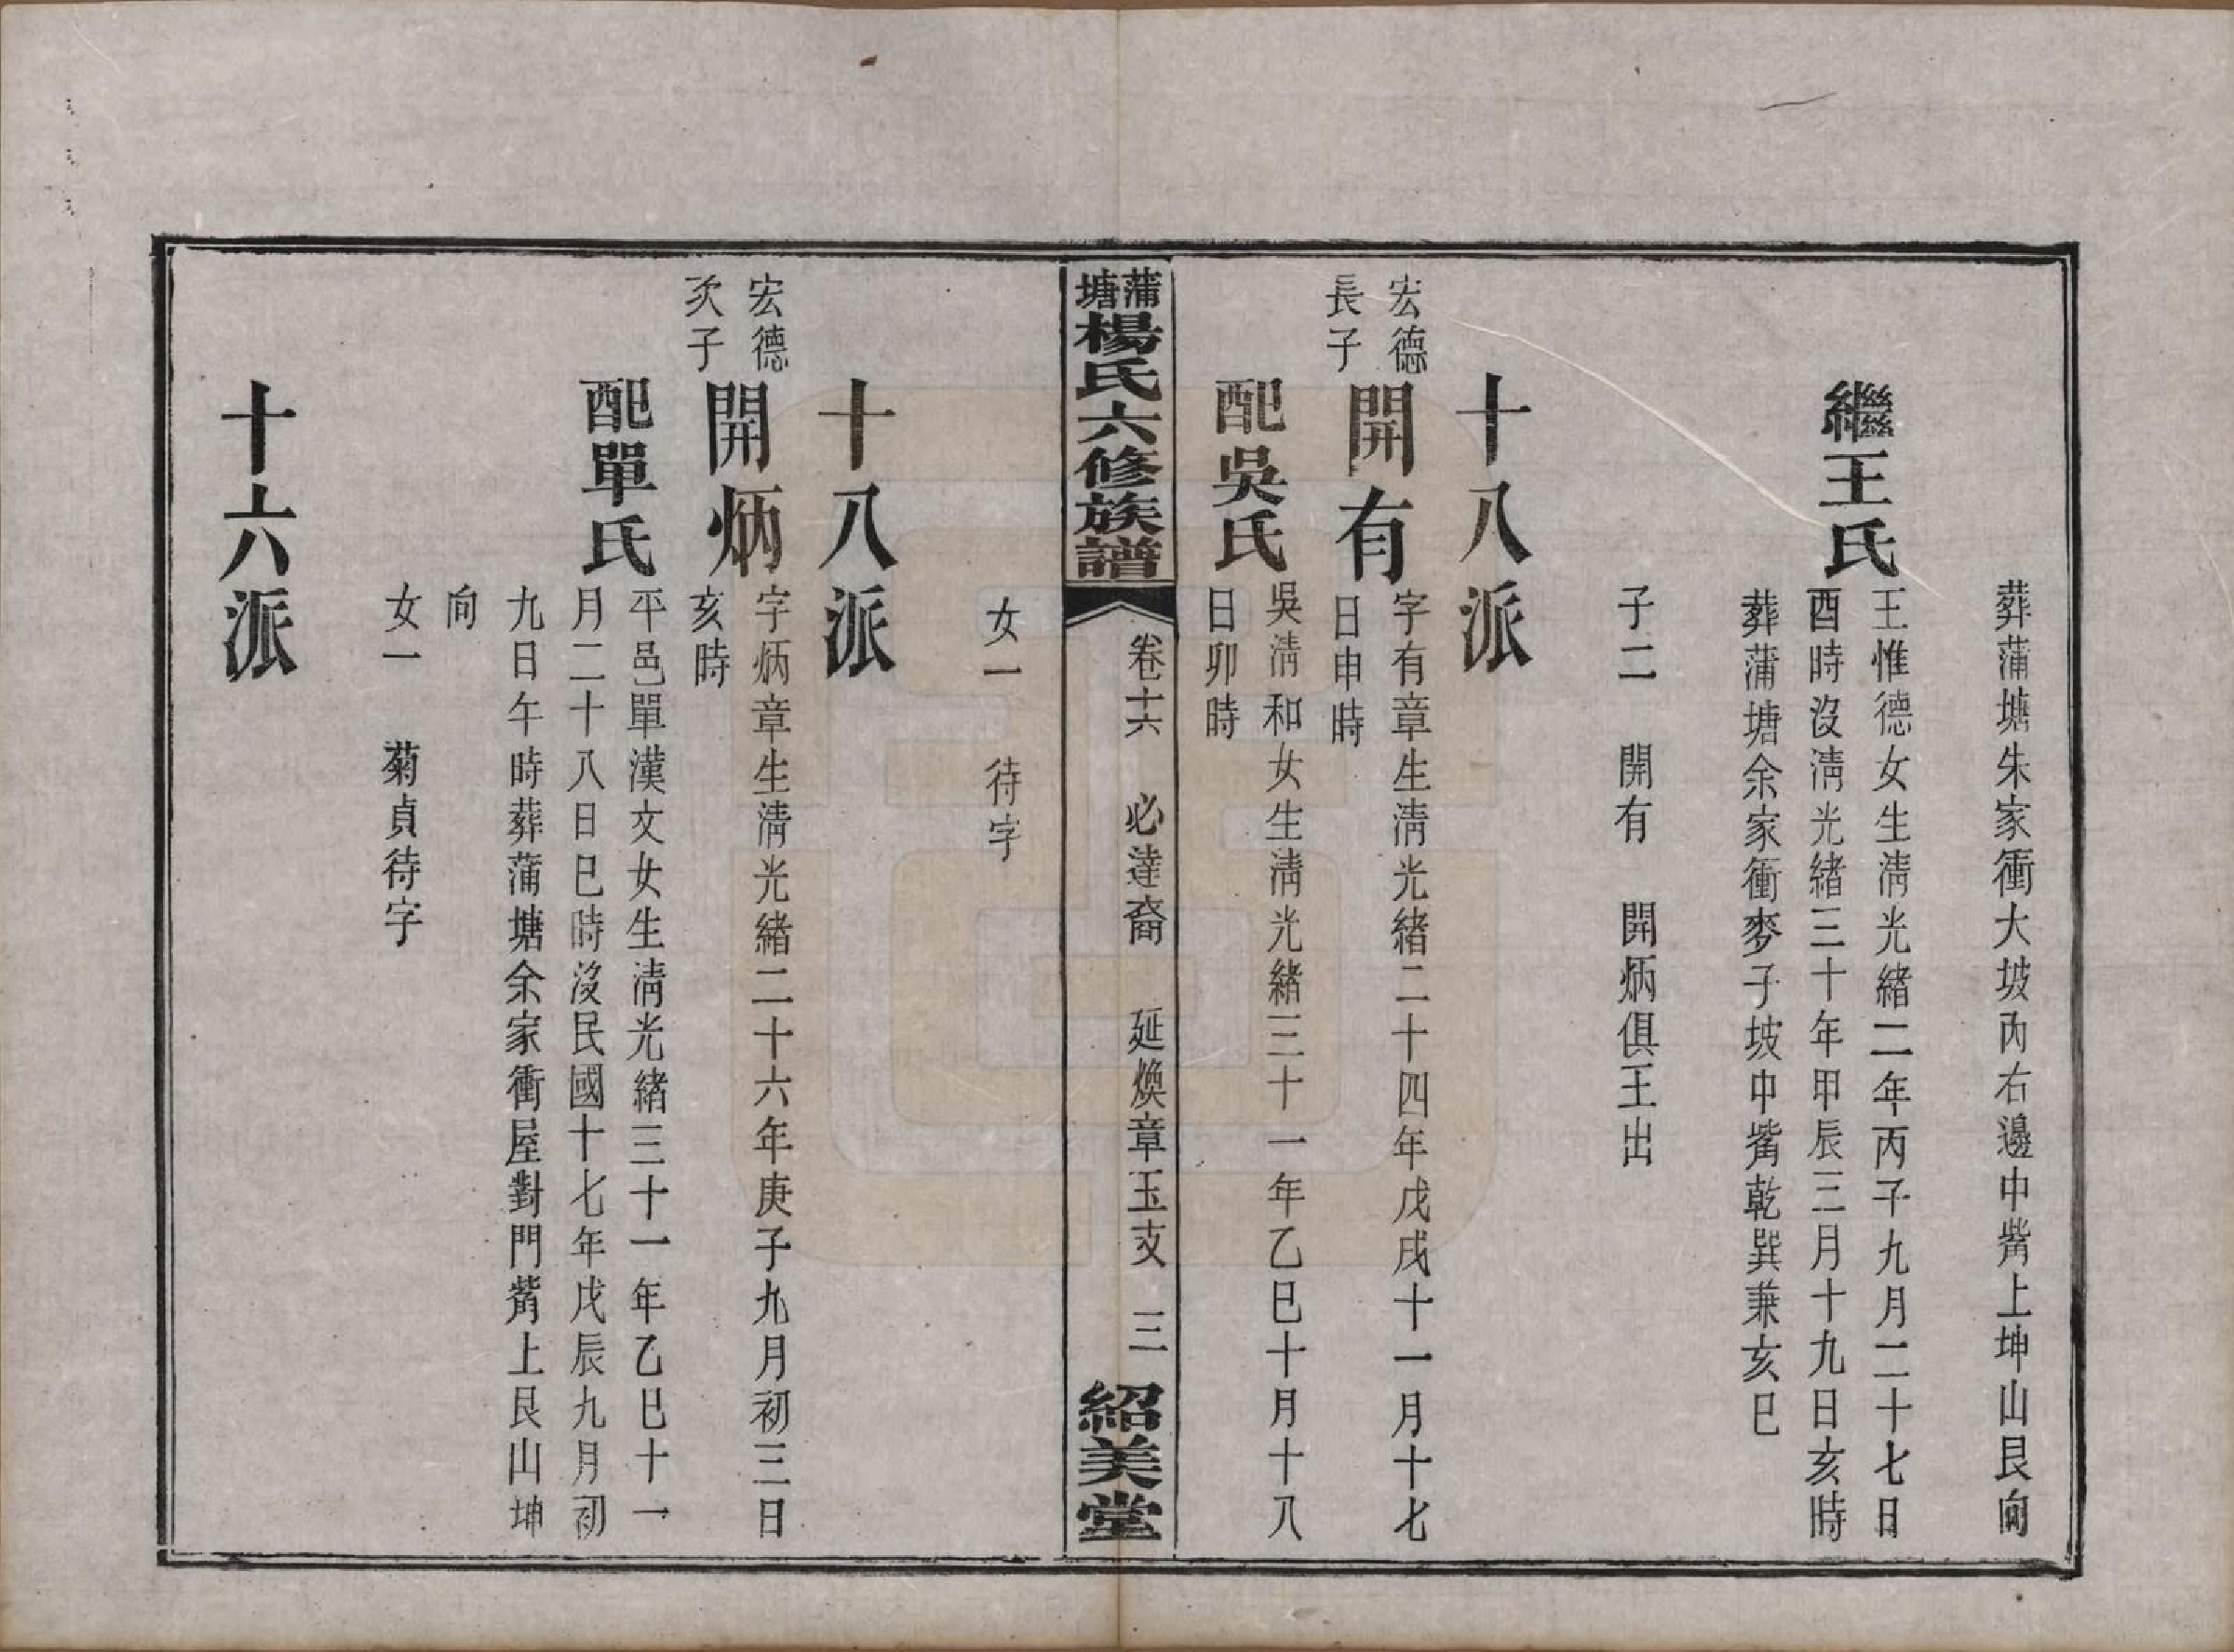 葬蒲塘朱家衝大坡內右邊中觜上坤山艮向
繼王氏
王惟德女生淸光緒二年丙子九月二十七日
酉時沒淸光緒三十年甲辰三月十九日亥時
葬蒲塘余家衝麥子坡中觜乾巽兼亥巳
子二　開有　開炳俱王出
十八派
宏德
長子
開有
字有章生淸光緒二十四年戊戌十一月十七
日申時
配吳氏
吳淸和女生淸光緒三十一年乙巳十月十八
日卯時
蒲塘楊氏六修族譜
卷十六　必達裔　延煥章玉支　三
紹美堂
女一　待字
十八派
宏德
次子
開炳
字炳章生淸光緒二十六年庚子九月初三日
亥時
配單氏
平邑單漢文女生淸光緒三十一年乙巳十一
月二十八日巳時沒民國十七年戊辰九月初
九日午時葬蒲塘余家衝屋對門觜上艮山坤
向
女一　菊貞待字
十六派